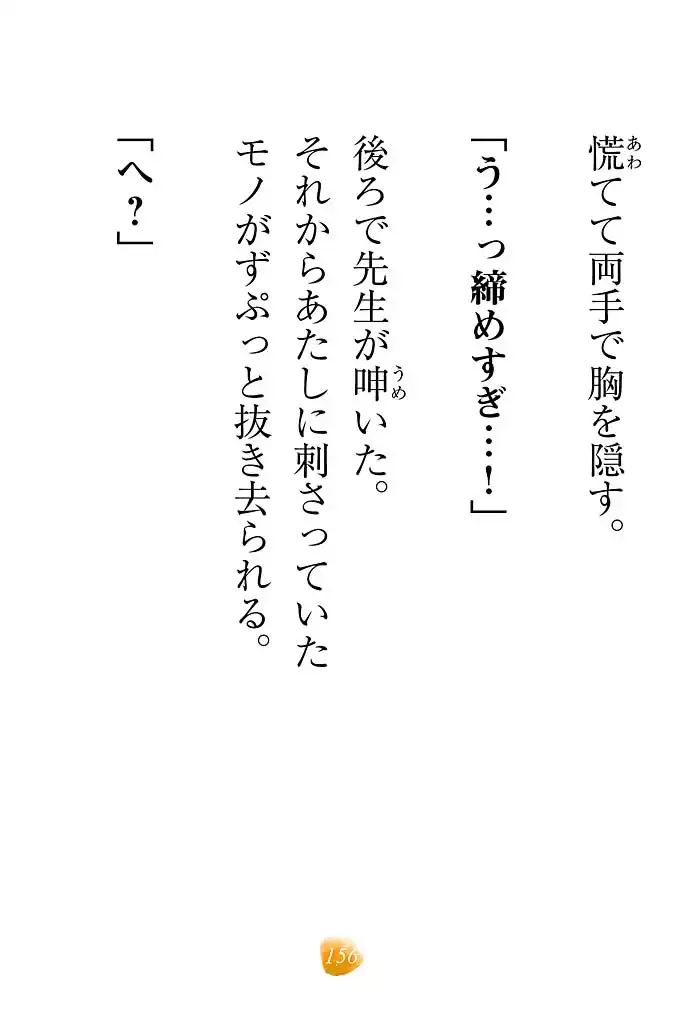 慌てて両手で胸を隠す。
「う…っ締めすぎ…！」
後ろで先生が呻いた。
それからあたしに刺さっていた
モノがずぷっと抜き去られる。
「へ？」
156